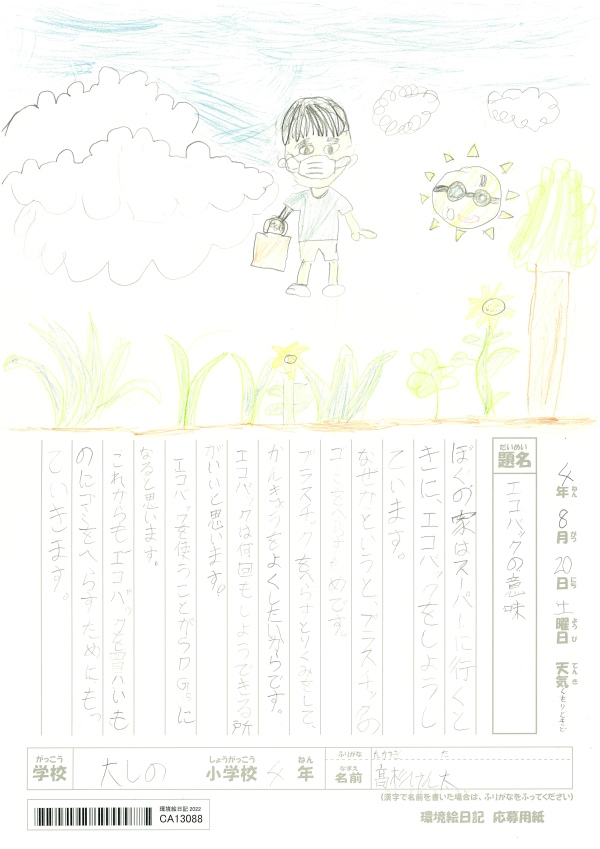 4年 8月 20日 土曜日 天気 くもりときどき
ねん がつ にち ようび てんき
だいめい
題名 エコバックの意味
ぼくの家はスーパーに行くと
きに、エコバックをしようし
ています。
なぜかというと、プラスチックの
ゴミをへらすためです。
プラスチックをへらすとりくみをして、
かんきょうをよくしたいからです。
エコバックは何回もしようできる所
がいいと思います。
エコバックを使うことがSDGsに
なると思います。
これからもエコバックを買いも
のにゴミをへらすためにもっ
ていきます。
がっこう しょうがっこう ねん
学校 大しの 小学校 4年
ふりがな
なまえ
名前 髙杉けん太
(漢字で名前を書いた場合は、ふりがなをふってください)
環境絵日記 2022
CA13088
環境絵日記 応募用紙